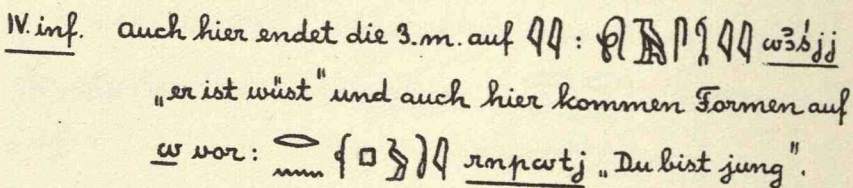 IV. inf. auch hier endet die 3. m. auf 𓇋𓇋 : 𓇋𓇋 wꜣśjj
„er ist wüst" und auch hier kommen Formen auf
w vor: 𓂋𓈖 rnpwtj „Du bist jung".